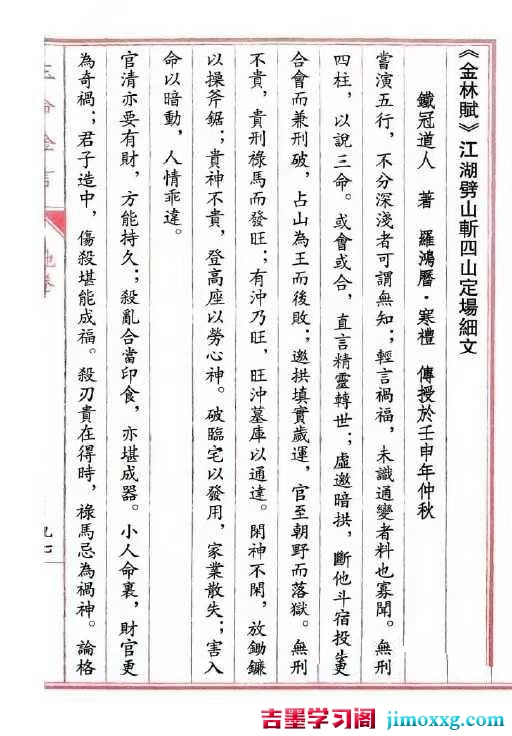 《金林賦》江湖劈山斬四山定場細文
鐵冠道人 著 羅鴻曆·寒禮 傳授於壬申年仲秋
嘗演五行，不分深淺者可謂無知；輕言禍福，未識通變者料也寡聞。無刑
四柱，以說三命。或會或合，直言精靈轉世；虛邀暗拱，斷他斗宿投生更
合會而兼刑破，占山為王而後敗；邀拱填實歲運，官至朝野而落獄。無刑
不貴，貴刑祿馬而發旺；有沖乃旺，旺沖墓庫以通達。閑神不閑，放鋤鐮
以操斧鋸；貴神不貴，登高座以勞心神。破臨宅以發用，家業散失；害入
命以暗動，人情乖違。
官清亦要有財，方能持久；殺亂合當印食，亦堪成器。小人命裏，財官更
為奇禍；君子造中，傷殺堪能成福。殺刃貴在得時，祿馬忌為禍神。論格
地卷
九七
吉墨学习阁 jimoxxg.com